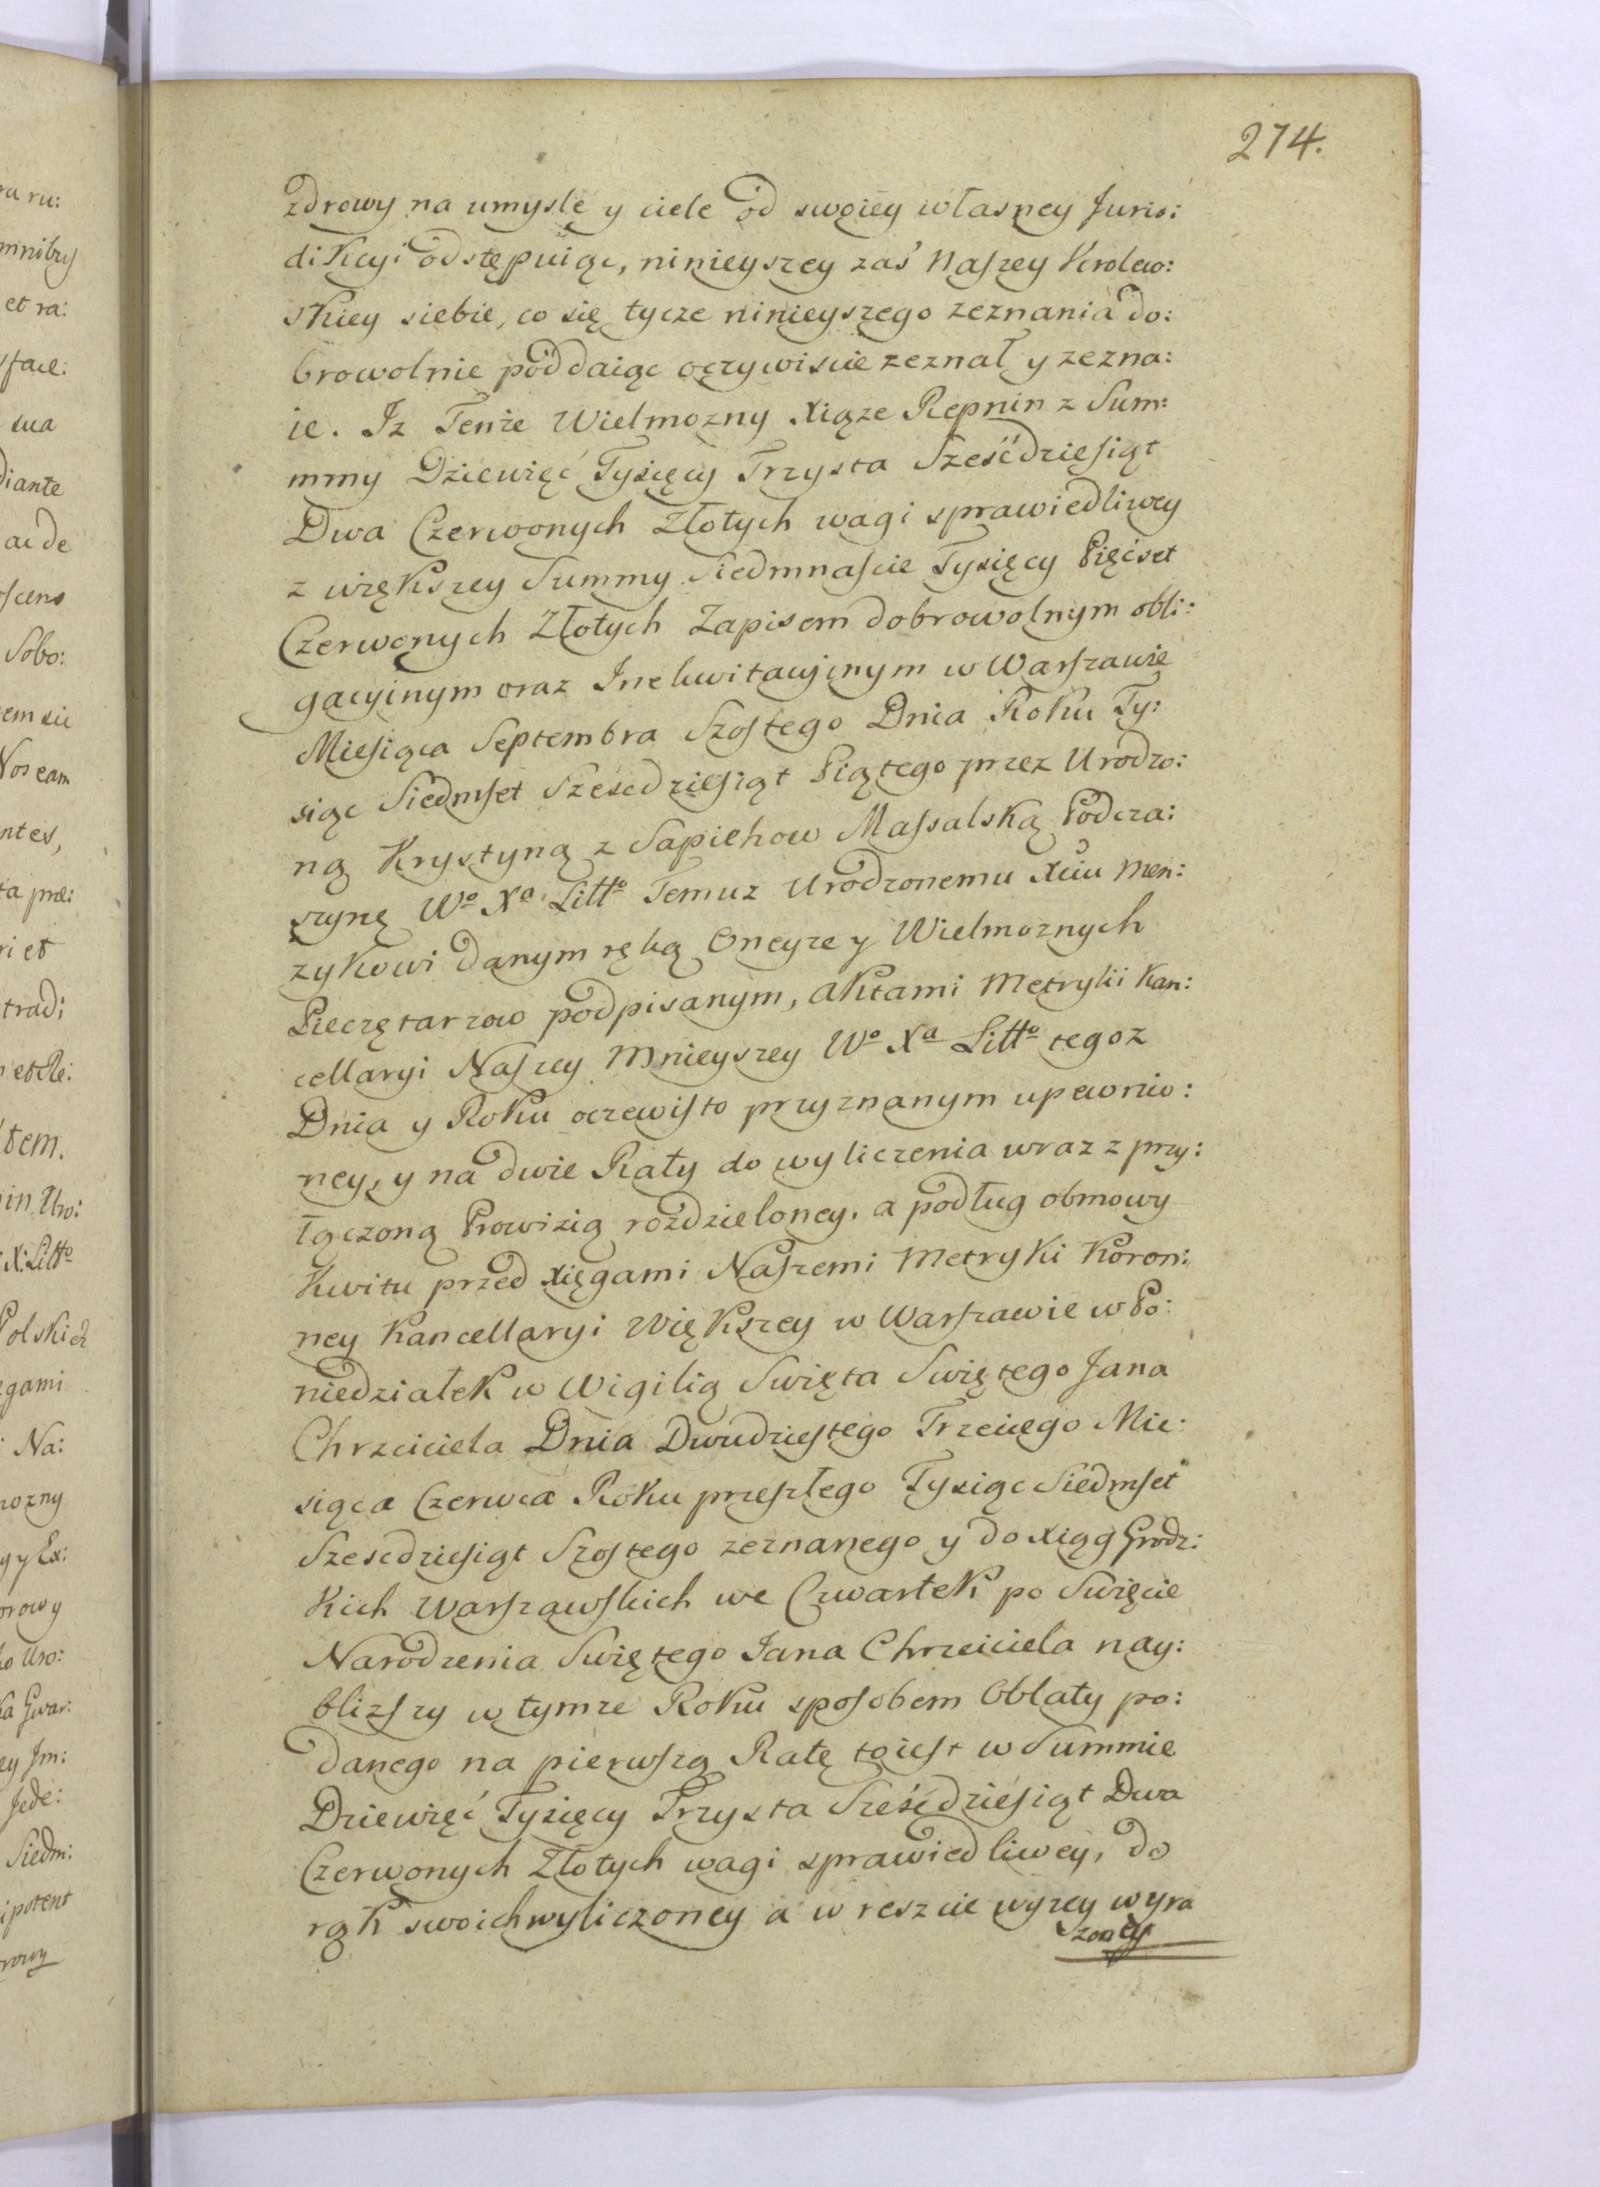 274.
zdrowy na umysle y ciele od swoiey własney Juris:
dikcyi odstępuiąc, ninieyszey zaś Naszey Krolew:
skiey siebie, co się tycze ninieyszego zeznania do:
browolnie poddaiąc oczywiscie zeznał y zezna:
ie. Iz Tenże Wielmozny Xiąze Repnin z Sum:
mmy Dziewięć Tysięcy Trzysta Sześćdziesiąt
Dwa Czerwonych Złotych wagi sprawiedliwey
z większey Summy Siedmnascie Tysięcy Pięćset
Czerwonych Złotych Zapisem dobrowolnym obli:
gacyinym oraz Inekwitacyjnym w Warszawie
Miesiąca Septembra Szostego Dnia Roku Ty:
siąc Siedmset Szescdziesiąt Piątego przez Urodzo:
ną Krystyną z Sapiehow Massalską Podcza:
szynę Wo Xa Litto Temuz Urodzonemu Xciu Men:
zykowi danym ręką Oneyze y Wielmoznych
Pieczętarzow podpisanym, aktami Metryki Kan:
cellaryi Naszey Mnieyszey Wo Xa Litto tegoz
Dnia y Roku oczewisto przyznanym upewnio:
ney, y na dwie Raty do wyliczenia wraz z przy:
łączoną Prowizią rozdzieloney. a podług obmowy
Kwitu przed Xięgami Naszemi Metryki Koron:
ney Kancellaryi Większey w Warszawie w Po:
niedziałek w Wigilią Swięta Swiętego Jana
Chrzciciela Dnia Dwudziestego Trzeciego Mie:
siąca Czerwca Roku przeszłego Tysiąc Siedmset
Szescdziesiąt Szostego zeznanego y do Xiąg Grodz:
kich Warszawskich we Czwartek po Swięcie
Narodzenia Swiętego Jana Chrzciciela nay:
blizszy w tymze Roku sposobem Oblaty po:
danego na pierwszą Ratę toiest w Summie
Dziewięć Tysięcy Trzysta Sześćdziesiąt Dwa
Czerwonych Złotych wagi sprawiedliwey, do
rąk swoich wyliczoney a w reszcie wyzey wyra
zoney